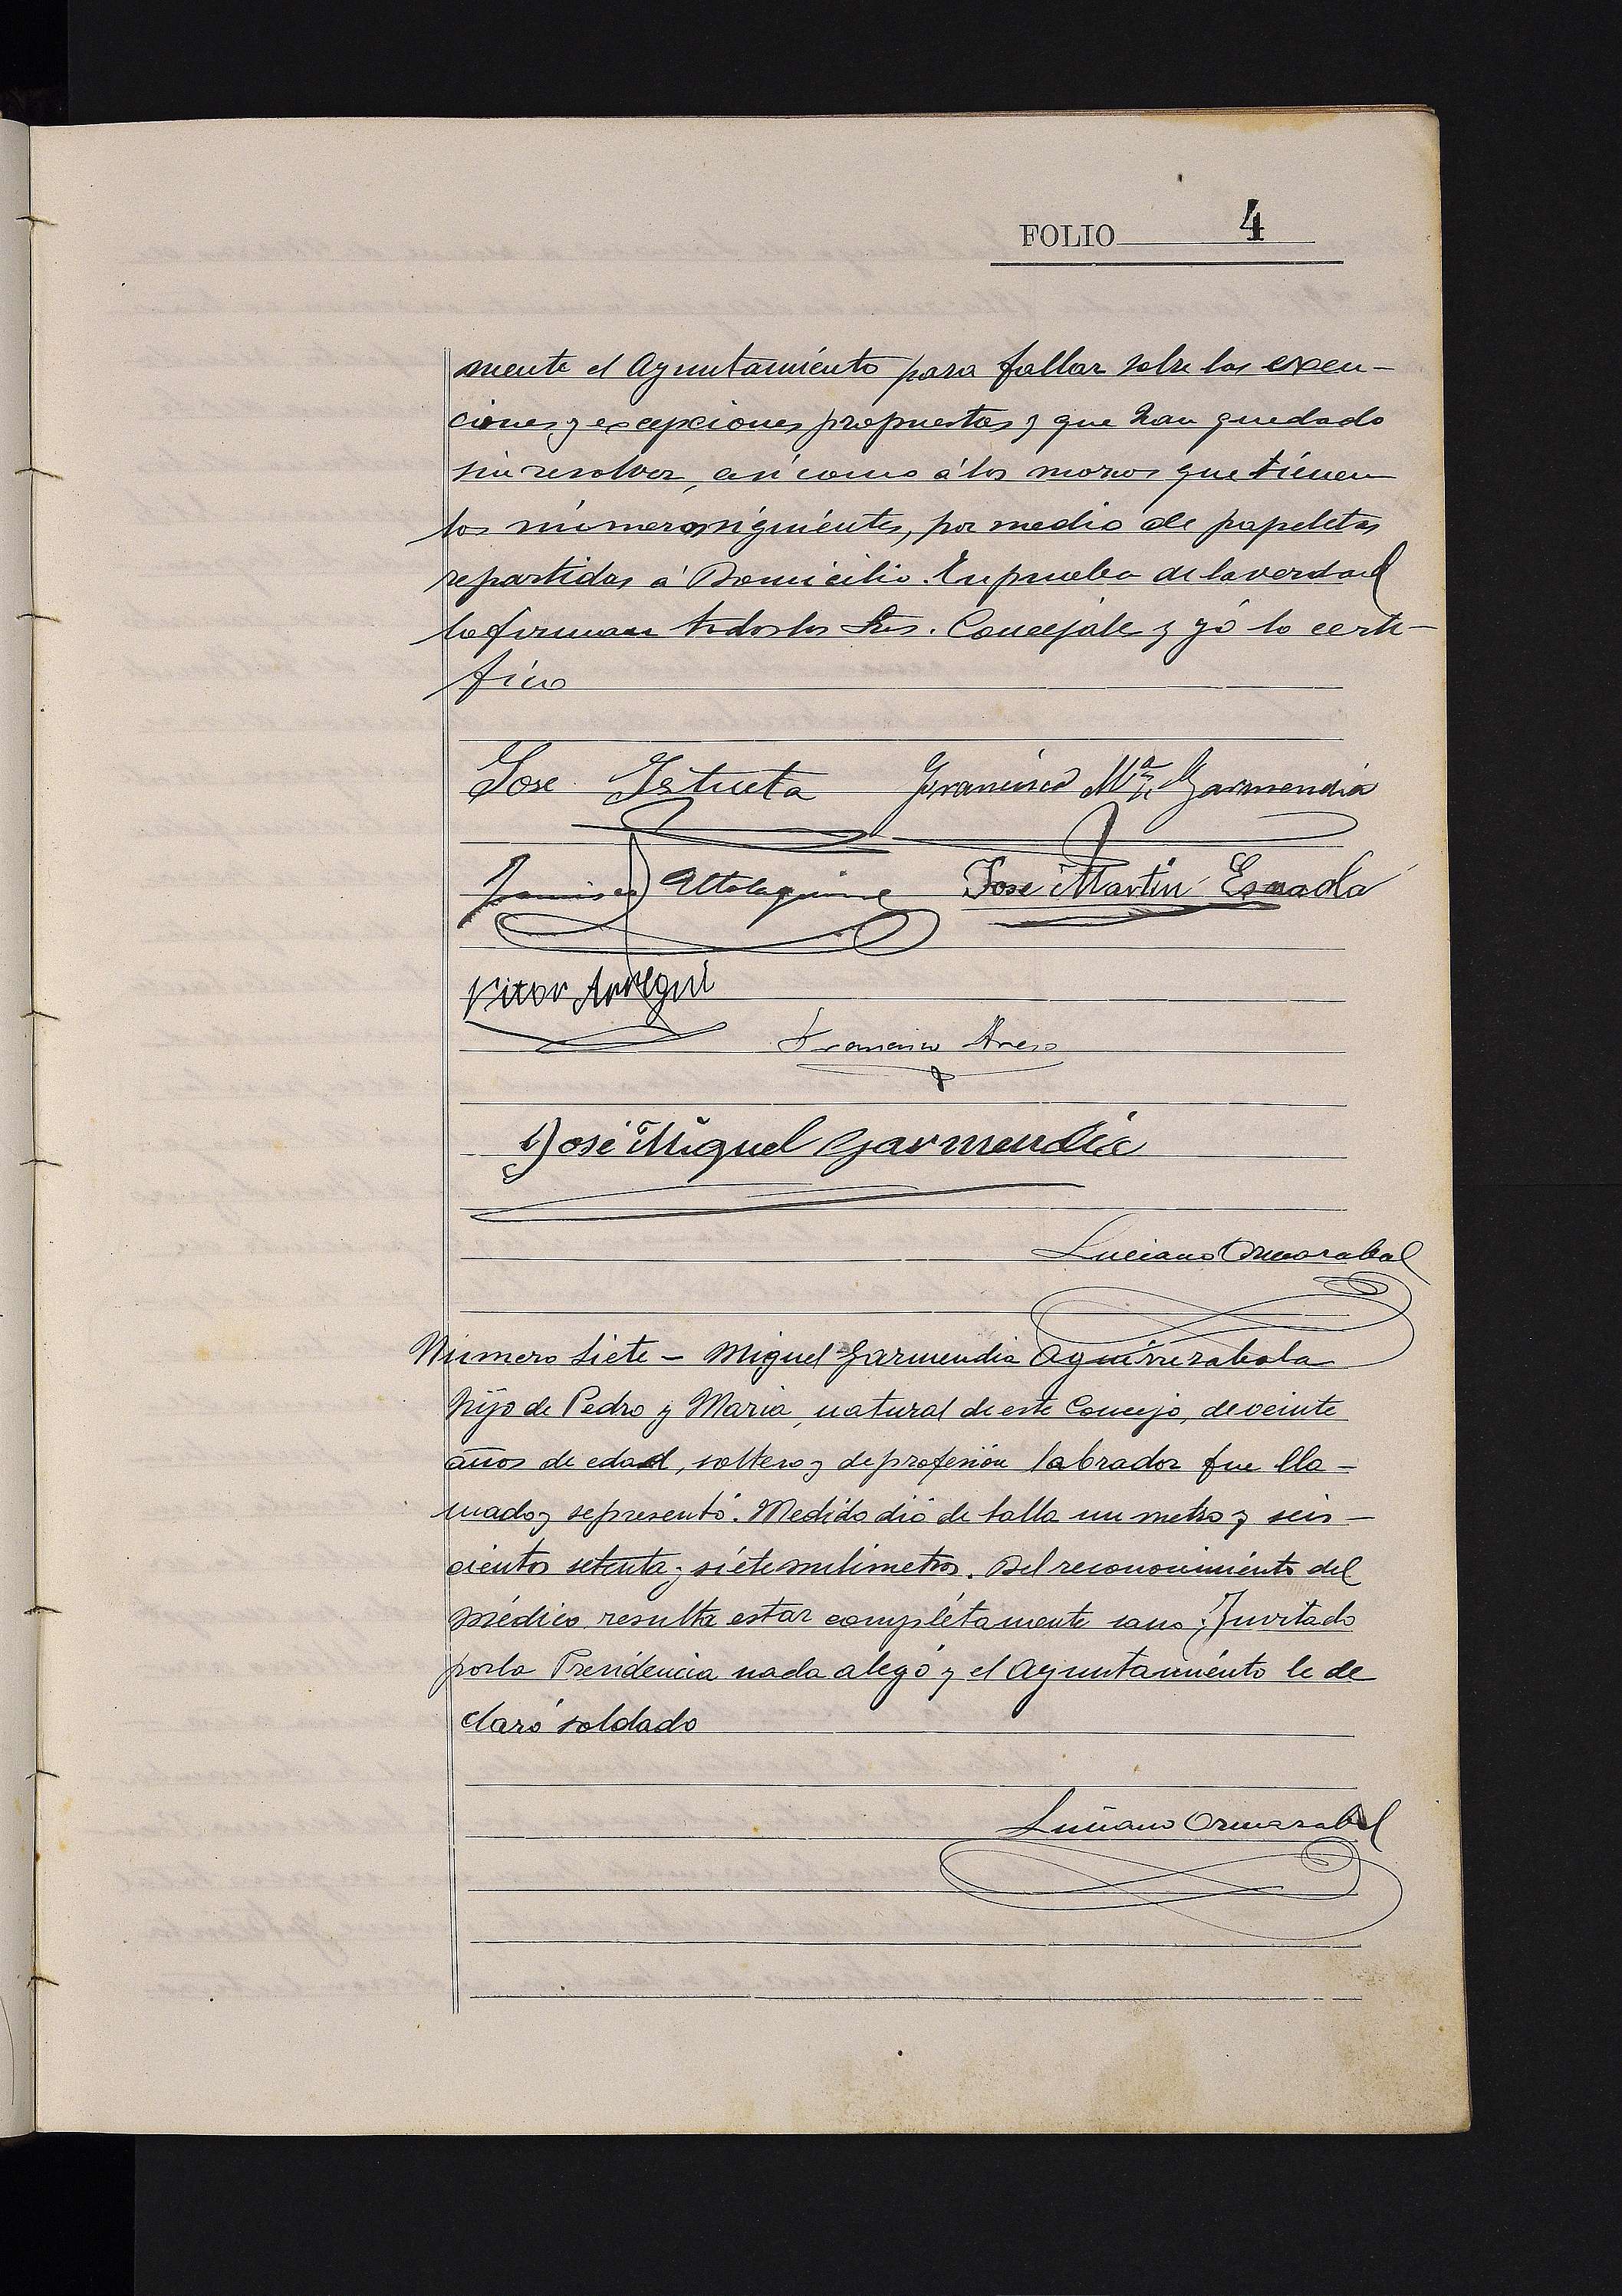 FOLIO 4
mente el Ayuntamiento para fallar sobre las exen-
ciones y excepciones propuestas y que han quedado
sin resolver, así como á los mozos que tienen
los números siguientes, por medio de papeletas
repartidas á Domicilio. En prueba de la verdad
lo firman todos los Sres. Concejales y yó lo certi-
fico
Jose Istueta Francisco Mª Garmendia
Francisco Altolaguirre Jose Martin Esnaola
Vitor Arregui
Francisco Areso
José Miguel Garmendia
Luciano Ormazabal
Número Siete - Miguel Garmendia Aguirrezabala
hijo de Pedro y Maria, natural de este Concejo, de veinte
años de edad, soltero y de profesión labrador fue lla-
mado y se presentó. Medido dió de talla un metro y seis-
cientos setenta y siete milimetros. Del reconocimiento del
médico resulta estar completamente sano; Invitado
por la Presidencia nada alegó y el Ayuntamiento le de
claró soldado
Luciano Ormazabal